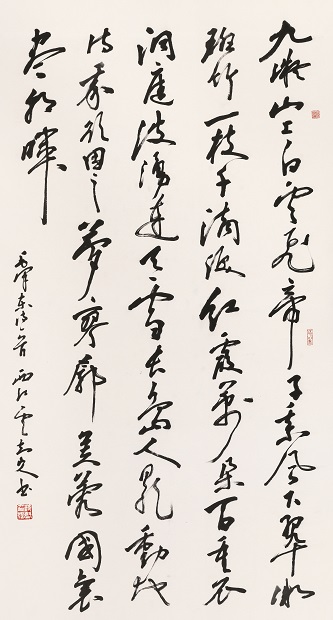 九嶷山上白雲飛帝子乘風下翠微
斑竹一枝千滴淚紅霞萬朵百重衣
洞庭波湧連天雪長島人歌動地
詩我欲因之夢寥廓芙蓉國裏
盡朝暉
毛澤東詩一首